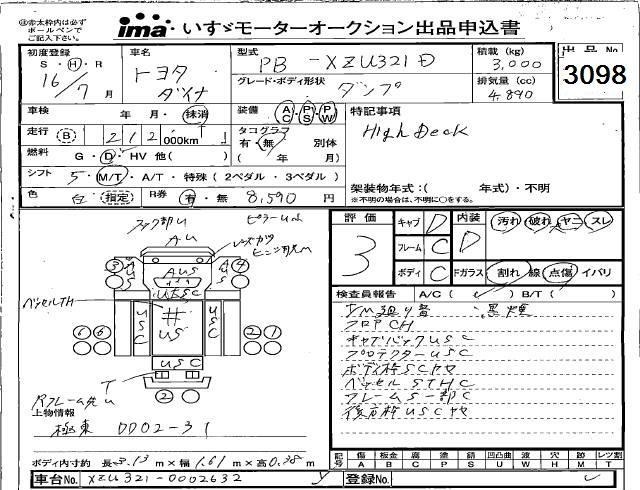 ※赤太枠内は必ず
ボールペンで
ご記入下さい。
ima いすゞモーターオークション出品申込書
初度登録 車名 型式 積載 (kg) 出品No.
S・H・R トヨタ PB - XZU321D 3,000 3098
16/7 月 ダイナ グレード・ボディ形状 ダンプ 排気量 (cc)
4,890
車検 年 月・抹消 装備 AC・PS・PW 特記事項
走行 B 212 000km タコグラフ High Deck
有・無 別体
燃料 G・D・HV 他( ) ( 年 月)
シフト 5 M/T・A/T・特殊(2ペダル・3ペダル) 架装物年式:( 年式)・不明
色 白 指定 R券 有・無 8,590 円 ※不明の場合は、不明に○をする。
評価 3
キャブ D 内装 D 汚れ 破れ ヤニ スレ
フレーム C
ボディ C Fガラス 割れ 線 点傷 イバリ
検査員報告 A/C ( ) B/T ( )
黒煙
フロアCH
キャブバックUSC
プロテクターUSC
ボディ枠SCヤ
ベッセルSTHC
フレームS一部C
後方枠USCヤ
AU
AUS
AUS
AUS
USC
USC
US
USC
USC
T
3
4
6
6
2
1
2
ベッセルTH
上物情報
極東 DD02-31
ボディ内寸約 長 3.13 m×幅 1.61 m×高 0.38 m
記号 A傷 B板金 C腐 P塗 S錆 U凹凸曲 W波 H穴 M跡 Tレンズ割
車台No. XZU321-0002632 登録No.